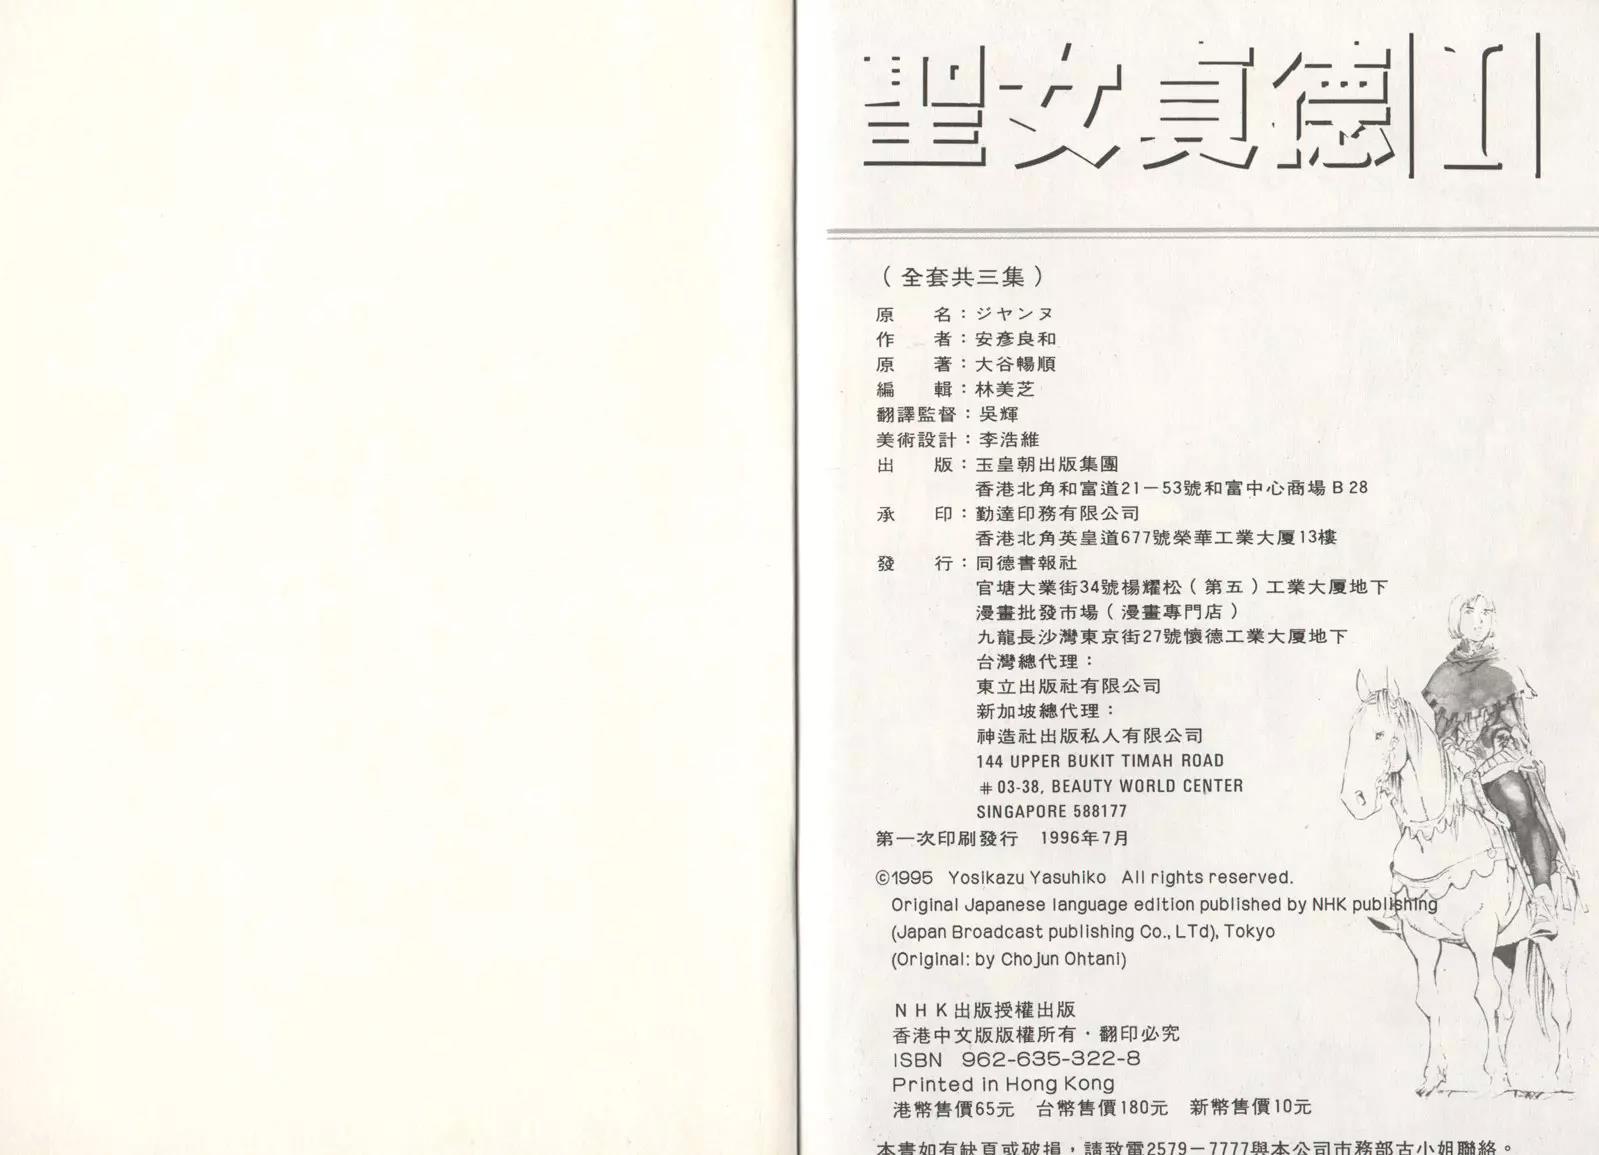 聖女貞德 I
（全套共三集）
原　　名：ジヤンヌ
作　　者：安彥良和
原　　著：大谷暢順
編　　輯：林美芝
翻譯監督：吳輝
美術設計：李浩維
出　　版：玉皇朝出版集團
香港北角和富道21－53號和富中心商場B28
承　　印：勤達印務有限公司
香港北角英皇道677號榮華工業大厦13樓
發　　行：同德書報社
官塘大業街34號楊耀松（第五）工業大厦地下
漫畫批發市場（漫畫專門店）
九龍長沙灣東京街27號懷德工業大厦地下
台灣總代理：
東立出版社有限公司
新加坡總代理：
神造社出版私人有限公司
144 UPPER BUKIT TIMAH ROAD
＃03-38, BEAUTY WORLD CENTER
SINGAPORE 588177
第一次印刷發行　1996年7月
©1995　Yosikazu Yasuhiko　All rights reserved.
Original Japanese language edition published by NHK publishing
(Japan Broadcast publishing Co., LTd), Tokyo
(Original: by Chojun Ohtani)
ＮＨＫ出版授權出版
香港中文版版權所有・翻印必究
ISBN　962-635-322-8
Printed in Hong Kong
港幣售價65元　台幣售價180元　新幣售價10元
本書如有缺頁或破損，請致電2579－7777與本公司市務部古小姐聯絡。